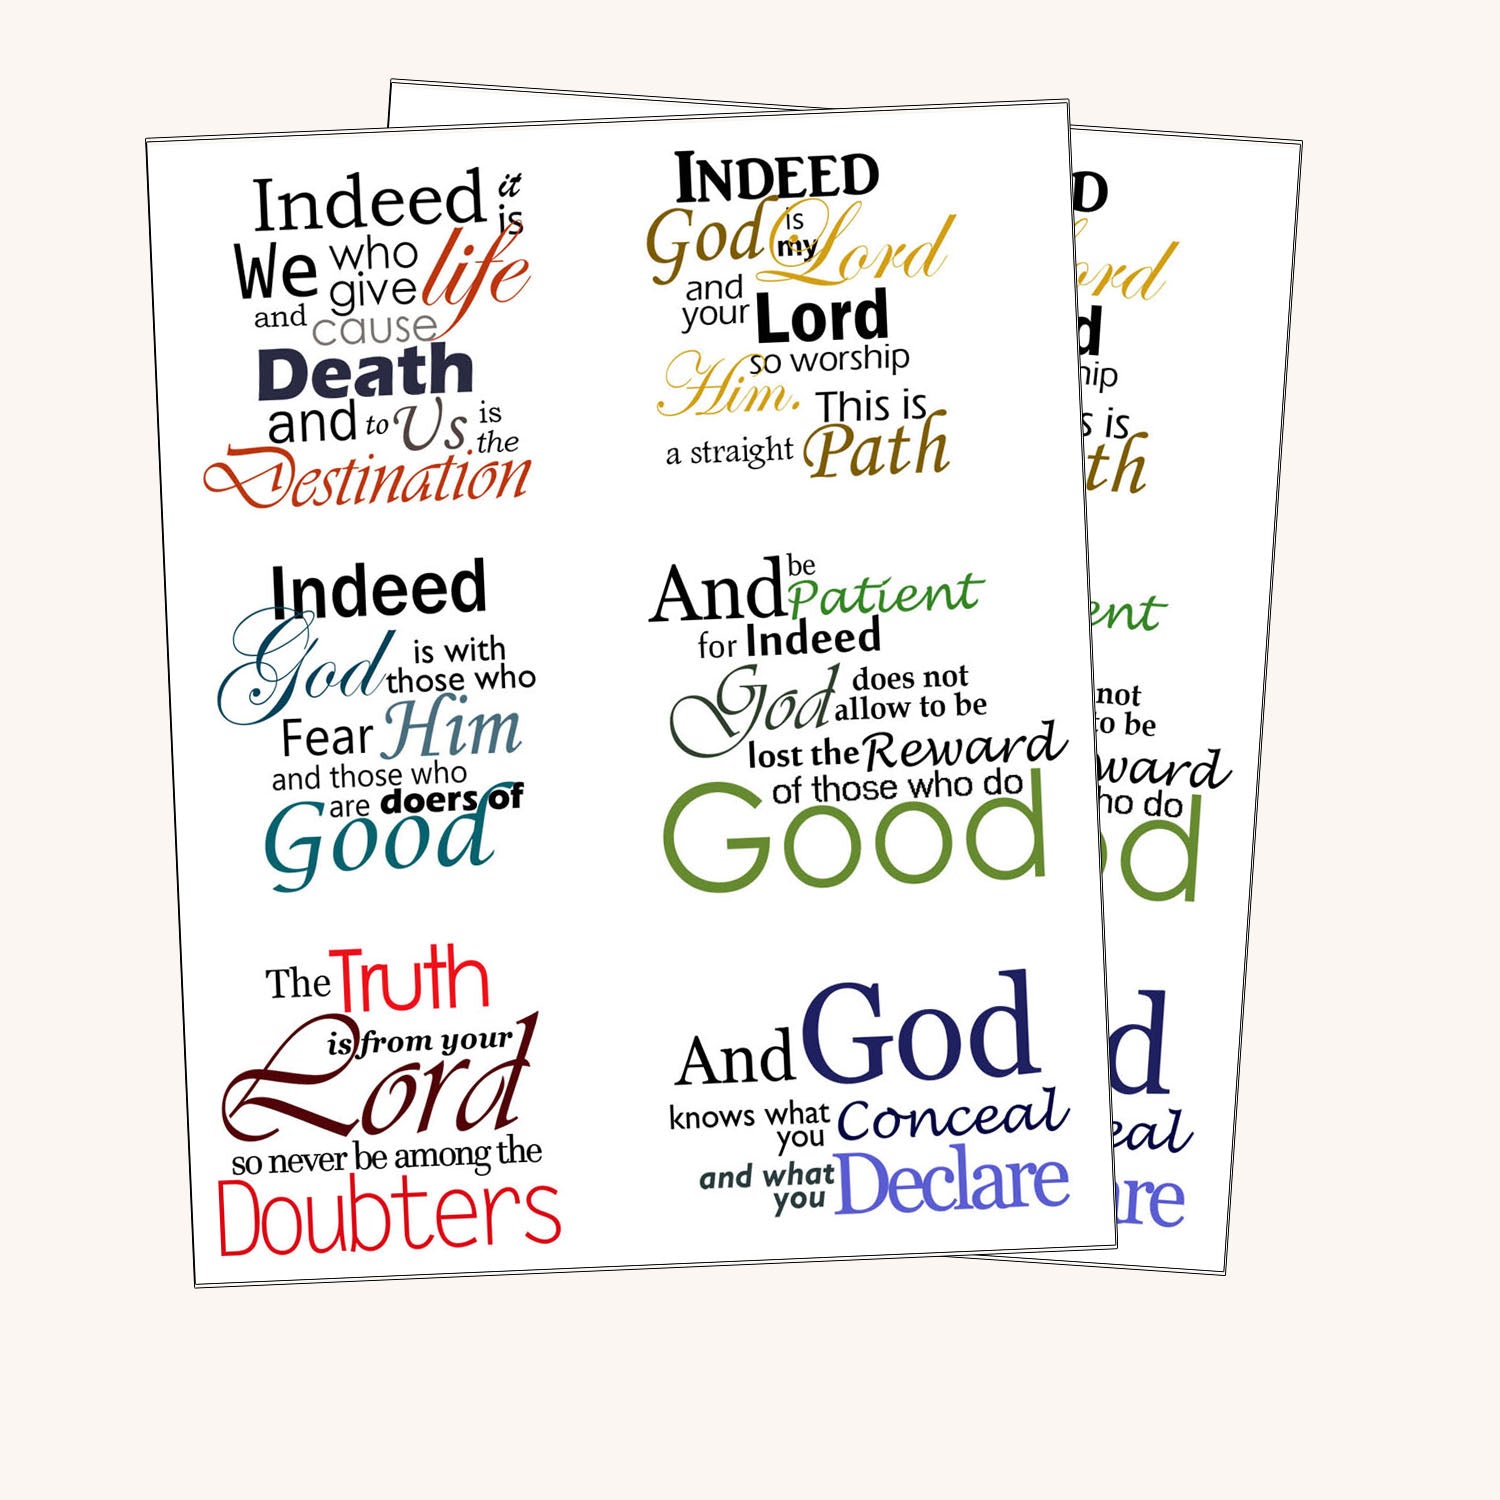 Indeed it is
We who give life
and cause
Death
and to Us is the
Destination
INDEED
God is my Lord
and your Lord
so worship
Him. This is
a straight Path
Indeed
God is with
those who
Fear Him
and those who
are doers of
Good
And be
Patient
for Indeed
God does not
allow to be
lost the Reward
of those who do
Good
The Truth
is from your
Lord
so never be among the
Doubters
And God
knows what
you Conceal
and what
you Declare
D
ord
d
hip
s is
th
ent
not
to be
ward
ho do
od
d
eal
are